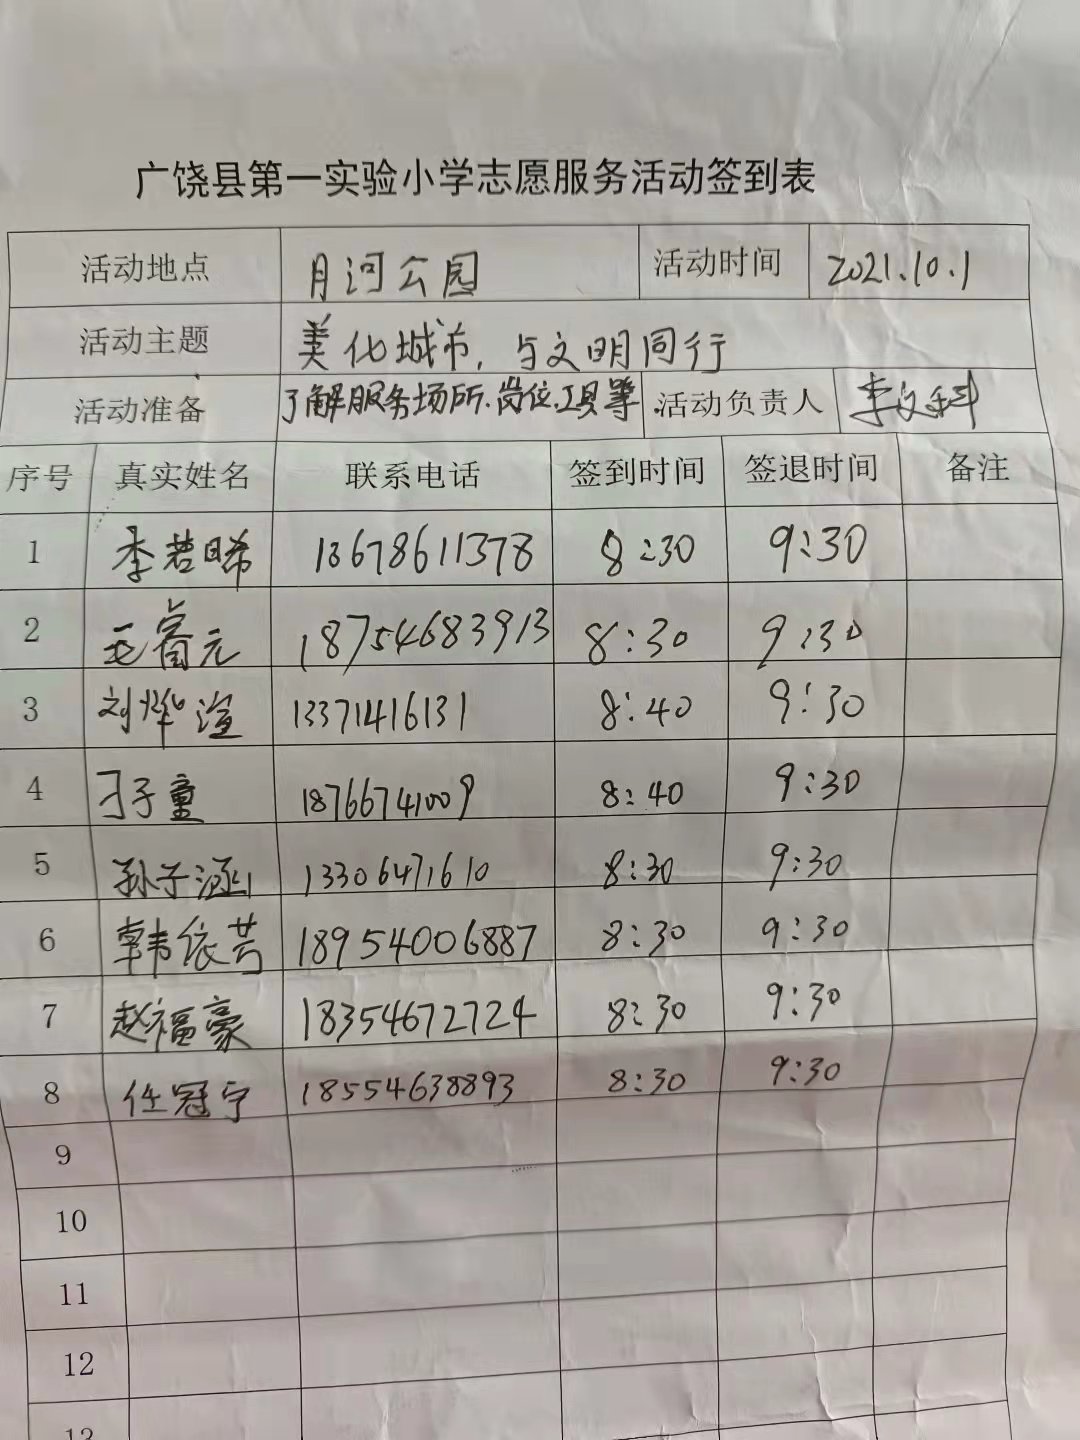 广饶县第一实验小学志愿服务活动签到表
活动地点 月河公园 活动时间 2021.10.1
活动主题 美化城市,与文明同行
活动准备 了解服务场所、岗位、工具等. 活动负责人 李文科
序号 真实姓名 联系电话 签到时间 签退时间 备注
1 李若晞 13678611378 8:30 9:30
2 毛睿元 18754683913 8:30 9:30
3 刘烨渲 13371416131 8:40 9:30
4 刁子童 18766741009 8:40 9:30
5 孙子涵 13306471610 8:30 9:30
6 韩依芸 18954006887 8:30 9:30
7 赵福豪 18354672724 8:30 9:30
8 任冠宁 18554638893 8:30 9:30
9
10
11
12
13